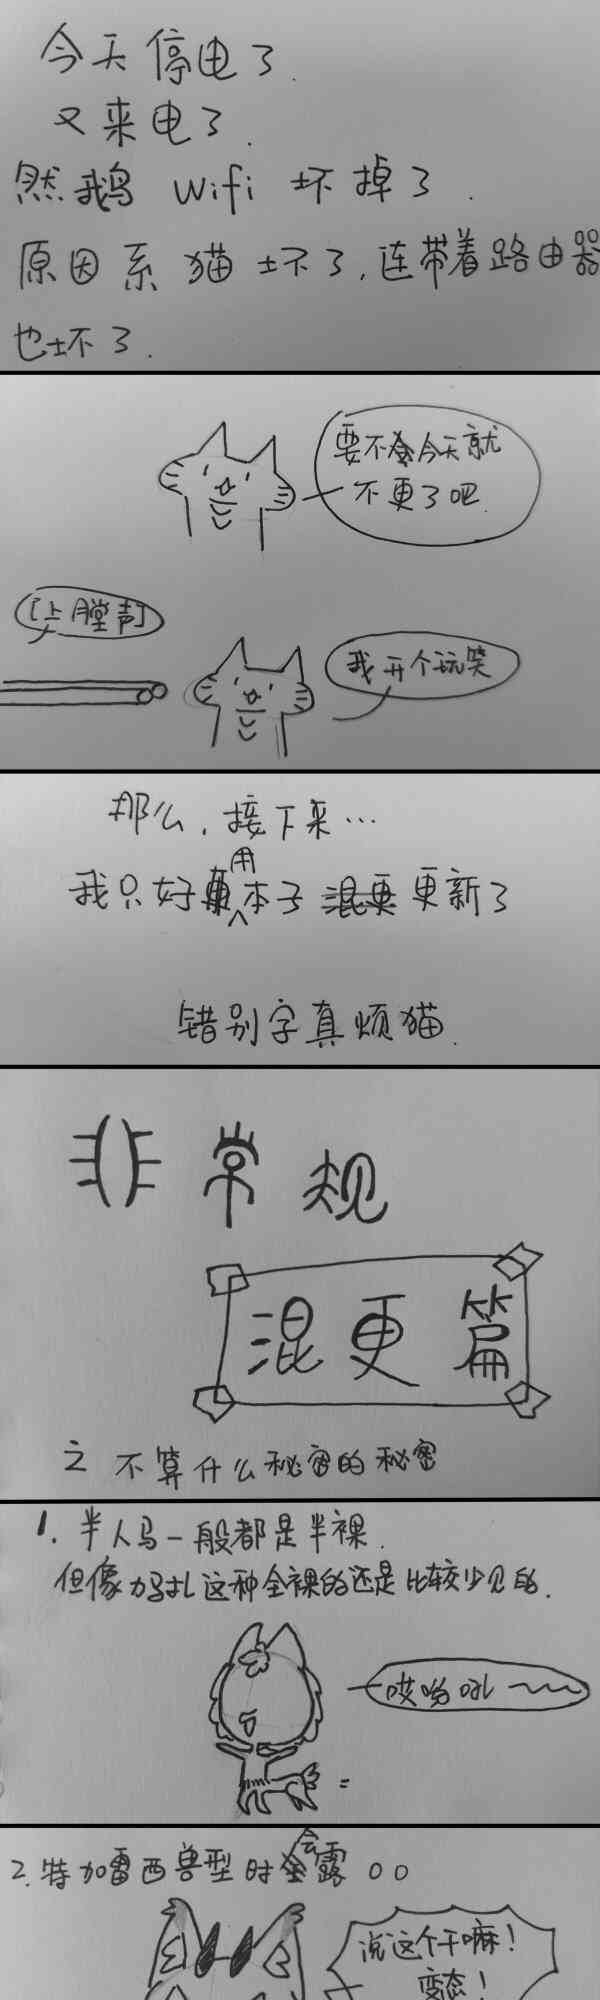 今天停电了.
又来电了.
然鹅 wifi 坏掉了.
原因系猫坏了,连带着路由器
也坏了.
要不今天就
不更了吧.
[上膛声]
我开个玩笑
那么,接下来…
我只好用本子 混更 更新了
错别字真烦猫.
非常规
混更篇
之 不算什么秘密的秘密
1. 半人马一般都是半裸.
但像玛扎这种全裸的还是比较少见的.
哎哟吼~~~
2. 特加雷西兽型时会露〇〇
说这个干嘛!
变态!